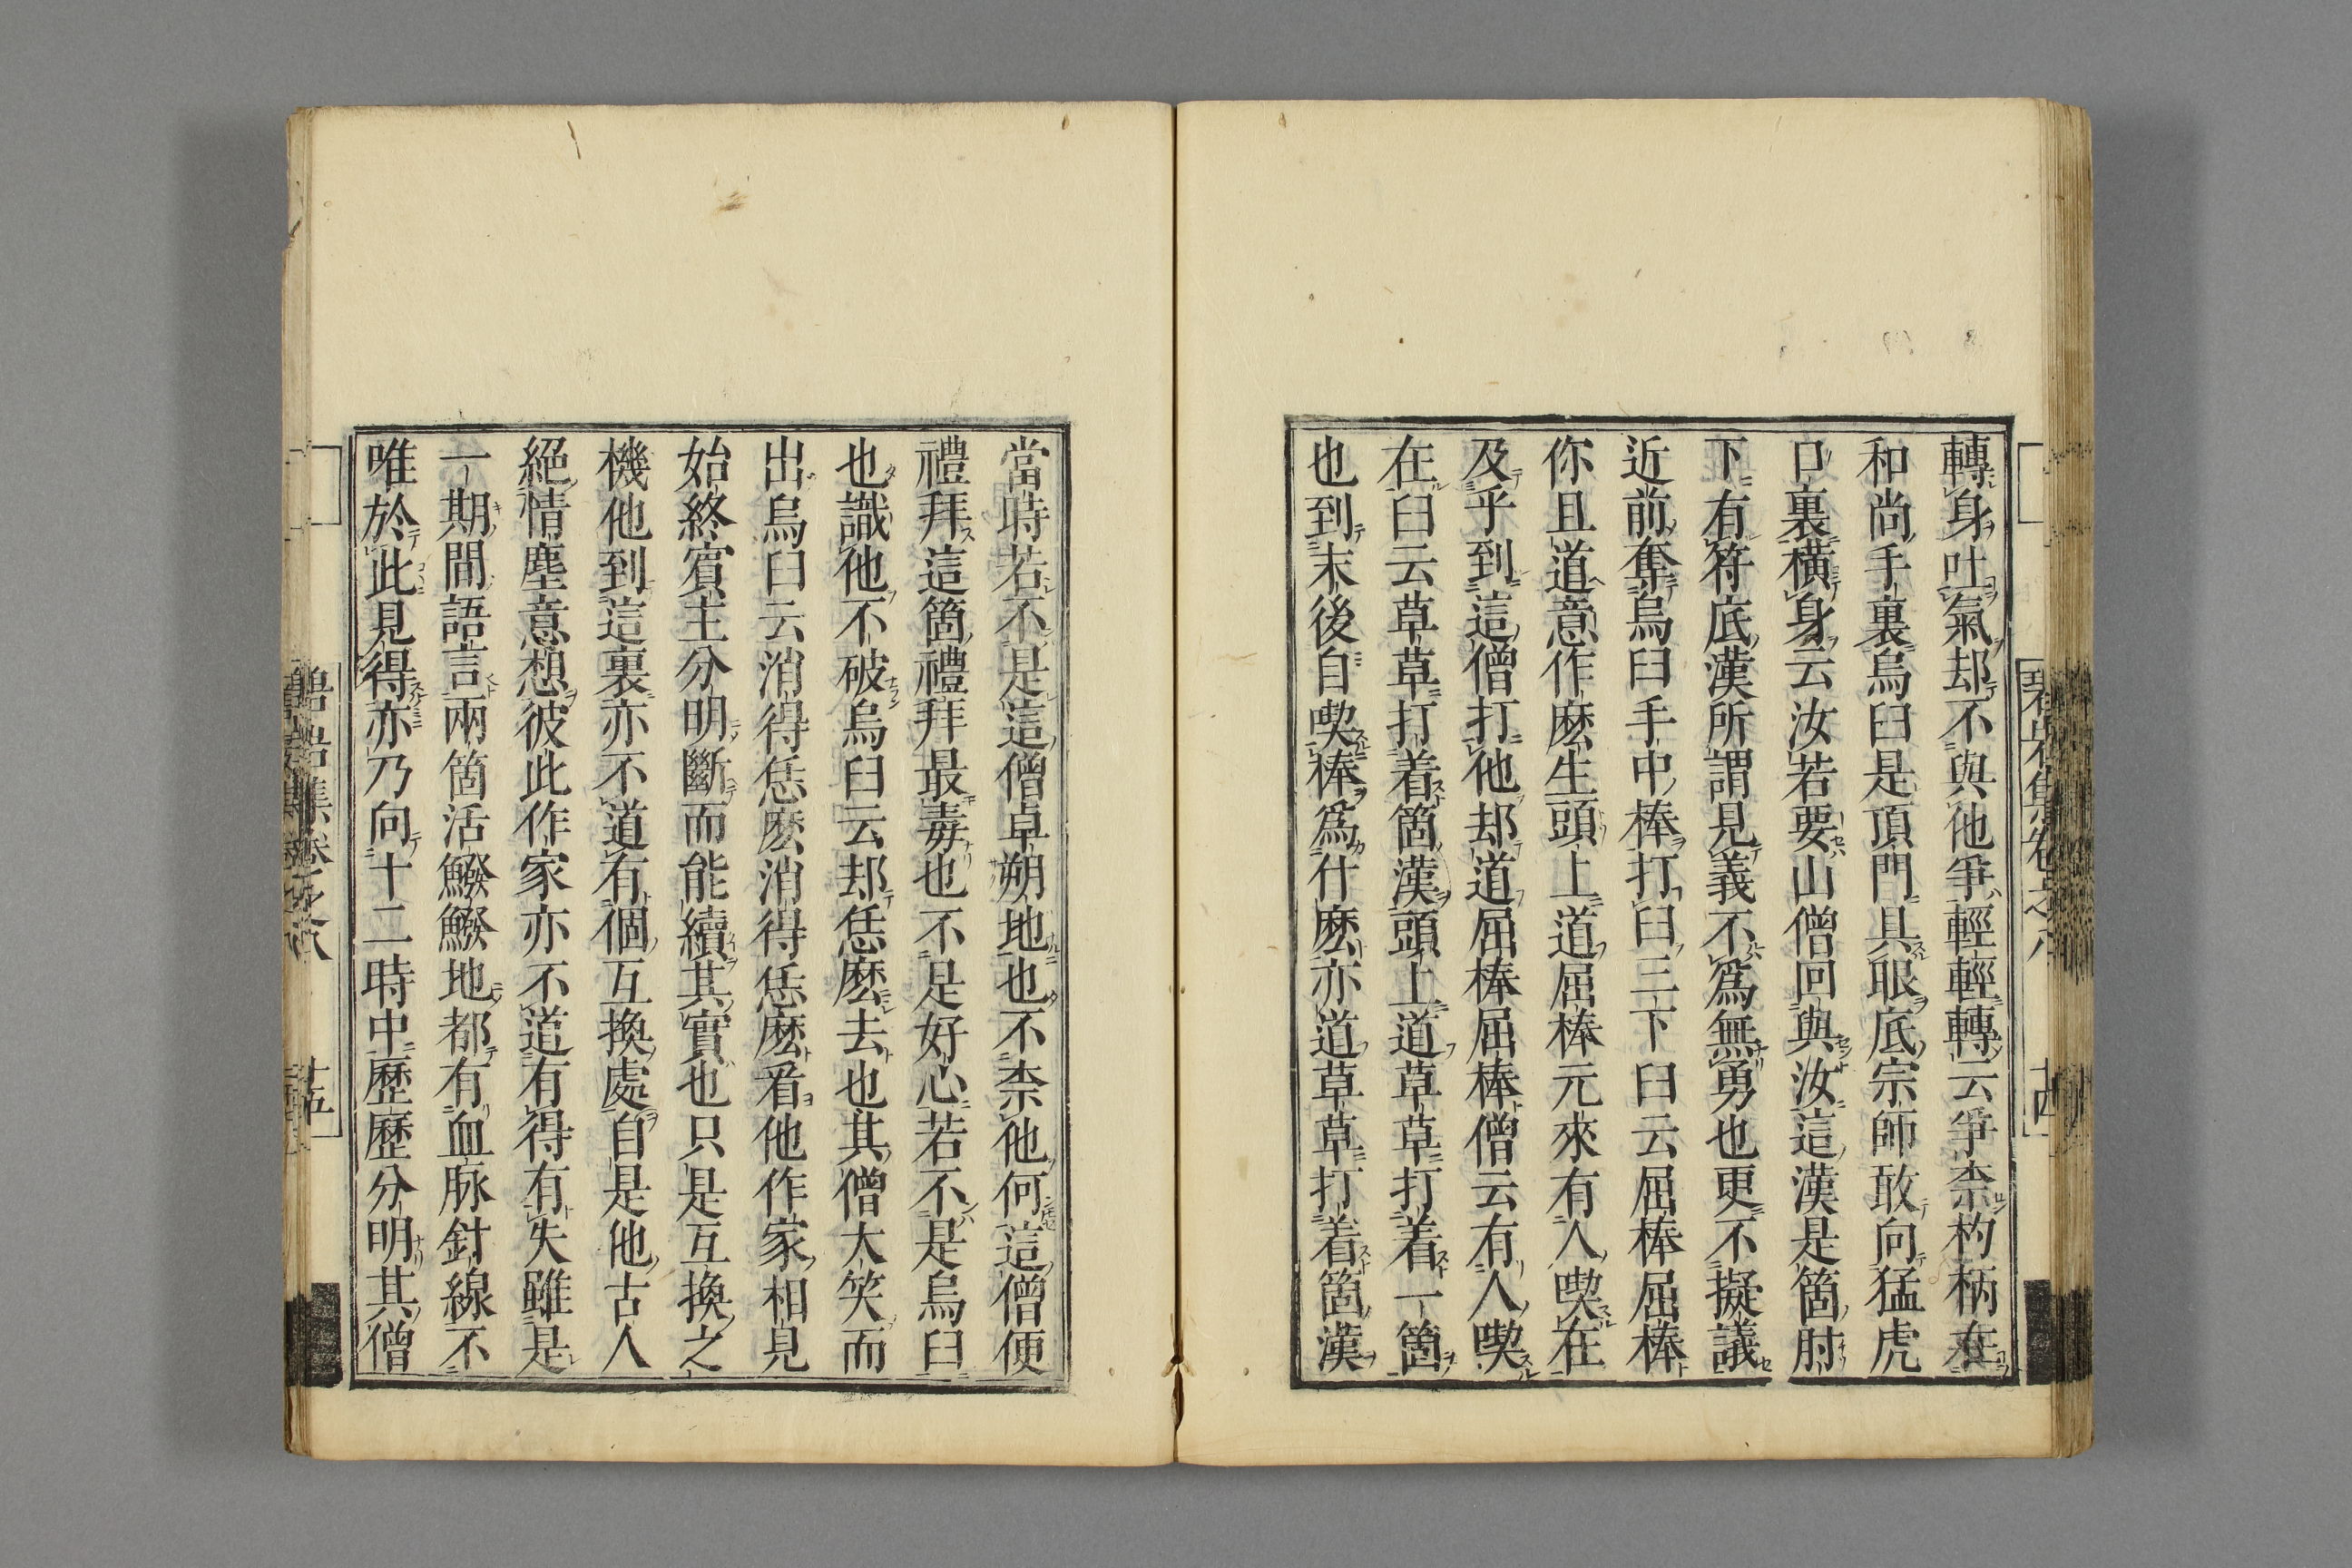 轉身吐氣却不與他爭輕輕轉云爭柰杓柄在
和尚手裏烏臼是頂門具眼底宗師敢向猛虎
口裏橫身云汝若要山僧回與汝這漢是箇肘
下有符底漢所謂見義不爲無勇也更不擬議
近前奪烏臼手中棒打臼三下臼云屈棒屈棒
你且道意作麽生頭上道屈棒元來有人喫在
及乎到這僧打他却道屈棒屈棒僧云有人喫
在臼云草草打着箇漢頭上道草草打着一箇
也到末後自喫棒爲什麽亦道草草打着箇漢
當時若不是這僧卓朔地也不柰他何這僧便
禮拜這箇禮拜最毒也不是好心若不是烏臼
也識他不破烏臼云却恁麽去也其僧大笑而
出烏臼云消得恁麽消得恁麽看他作家相見
始終賓主分明斷而能續其實也只是互換之
機他到這裏亦不道有個互換處自是他古人
絕情塵意想彼此作家亦不道有得有失雖是
一期間語言兩箇活鱍鱍地都有血脉針線不
唯於此見得亦乃向十二時中歷歷分明其僧
碧岩集卷之八
十四
十五